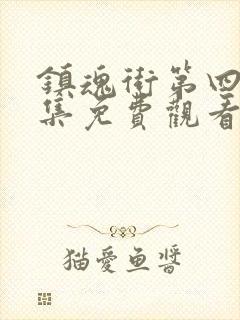 鎮魂街第四
集免費觀看
猫愛魚醬